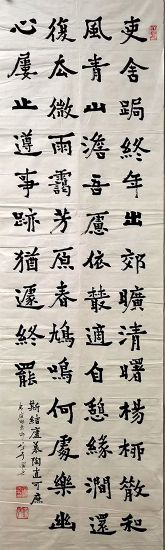 吏舍跼終年出郊曠清曙楊柳散和
風青山澹吾慮依叢適自憩緣澗還
復去微雨靄芳原春鳩鳴何處樂幽
心屢止遵事跡猶遽終罷
斯結廬慕陶直可庶